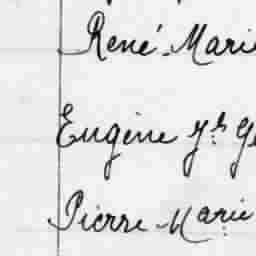 René Marie
Eugène
Pierre Marie